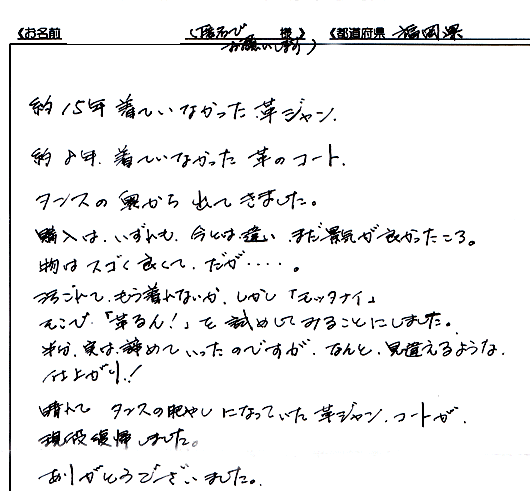 《お名前　（匿名でお願いします）　様》《都道府県　福岡県
約15年着ていなかった革ジャン、
約8年、着ていなかった革のコート、
タンスの奥から出てきました。
購入は、いずれも、今とは違い、まだ景気が良かったころ。
物はスゴく良くて、だが・・・・。
よごれて、もう着れないか、しかし「モッタナイ」
そこで、「革るん！」を試めしてみることにしました。
半分、実は、諦めていったのですが、なんと、見違えるような、
仕上がり！
晴れて タンスの肥やしになっていた革ジャン、コートが、
現役復帰しました。
ありがとうございました。